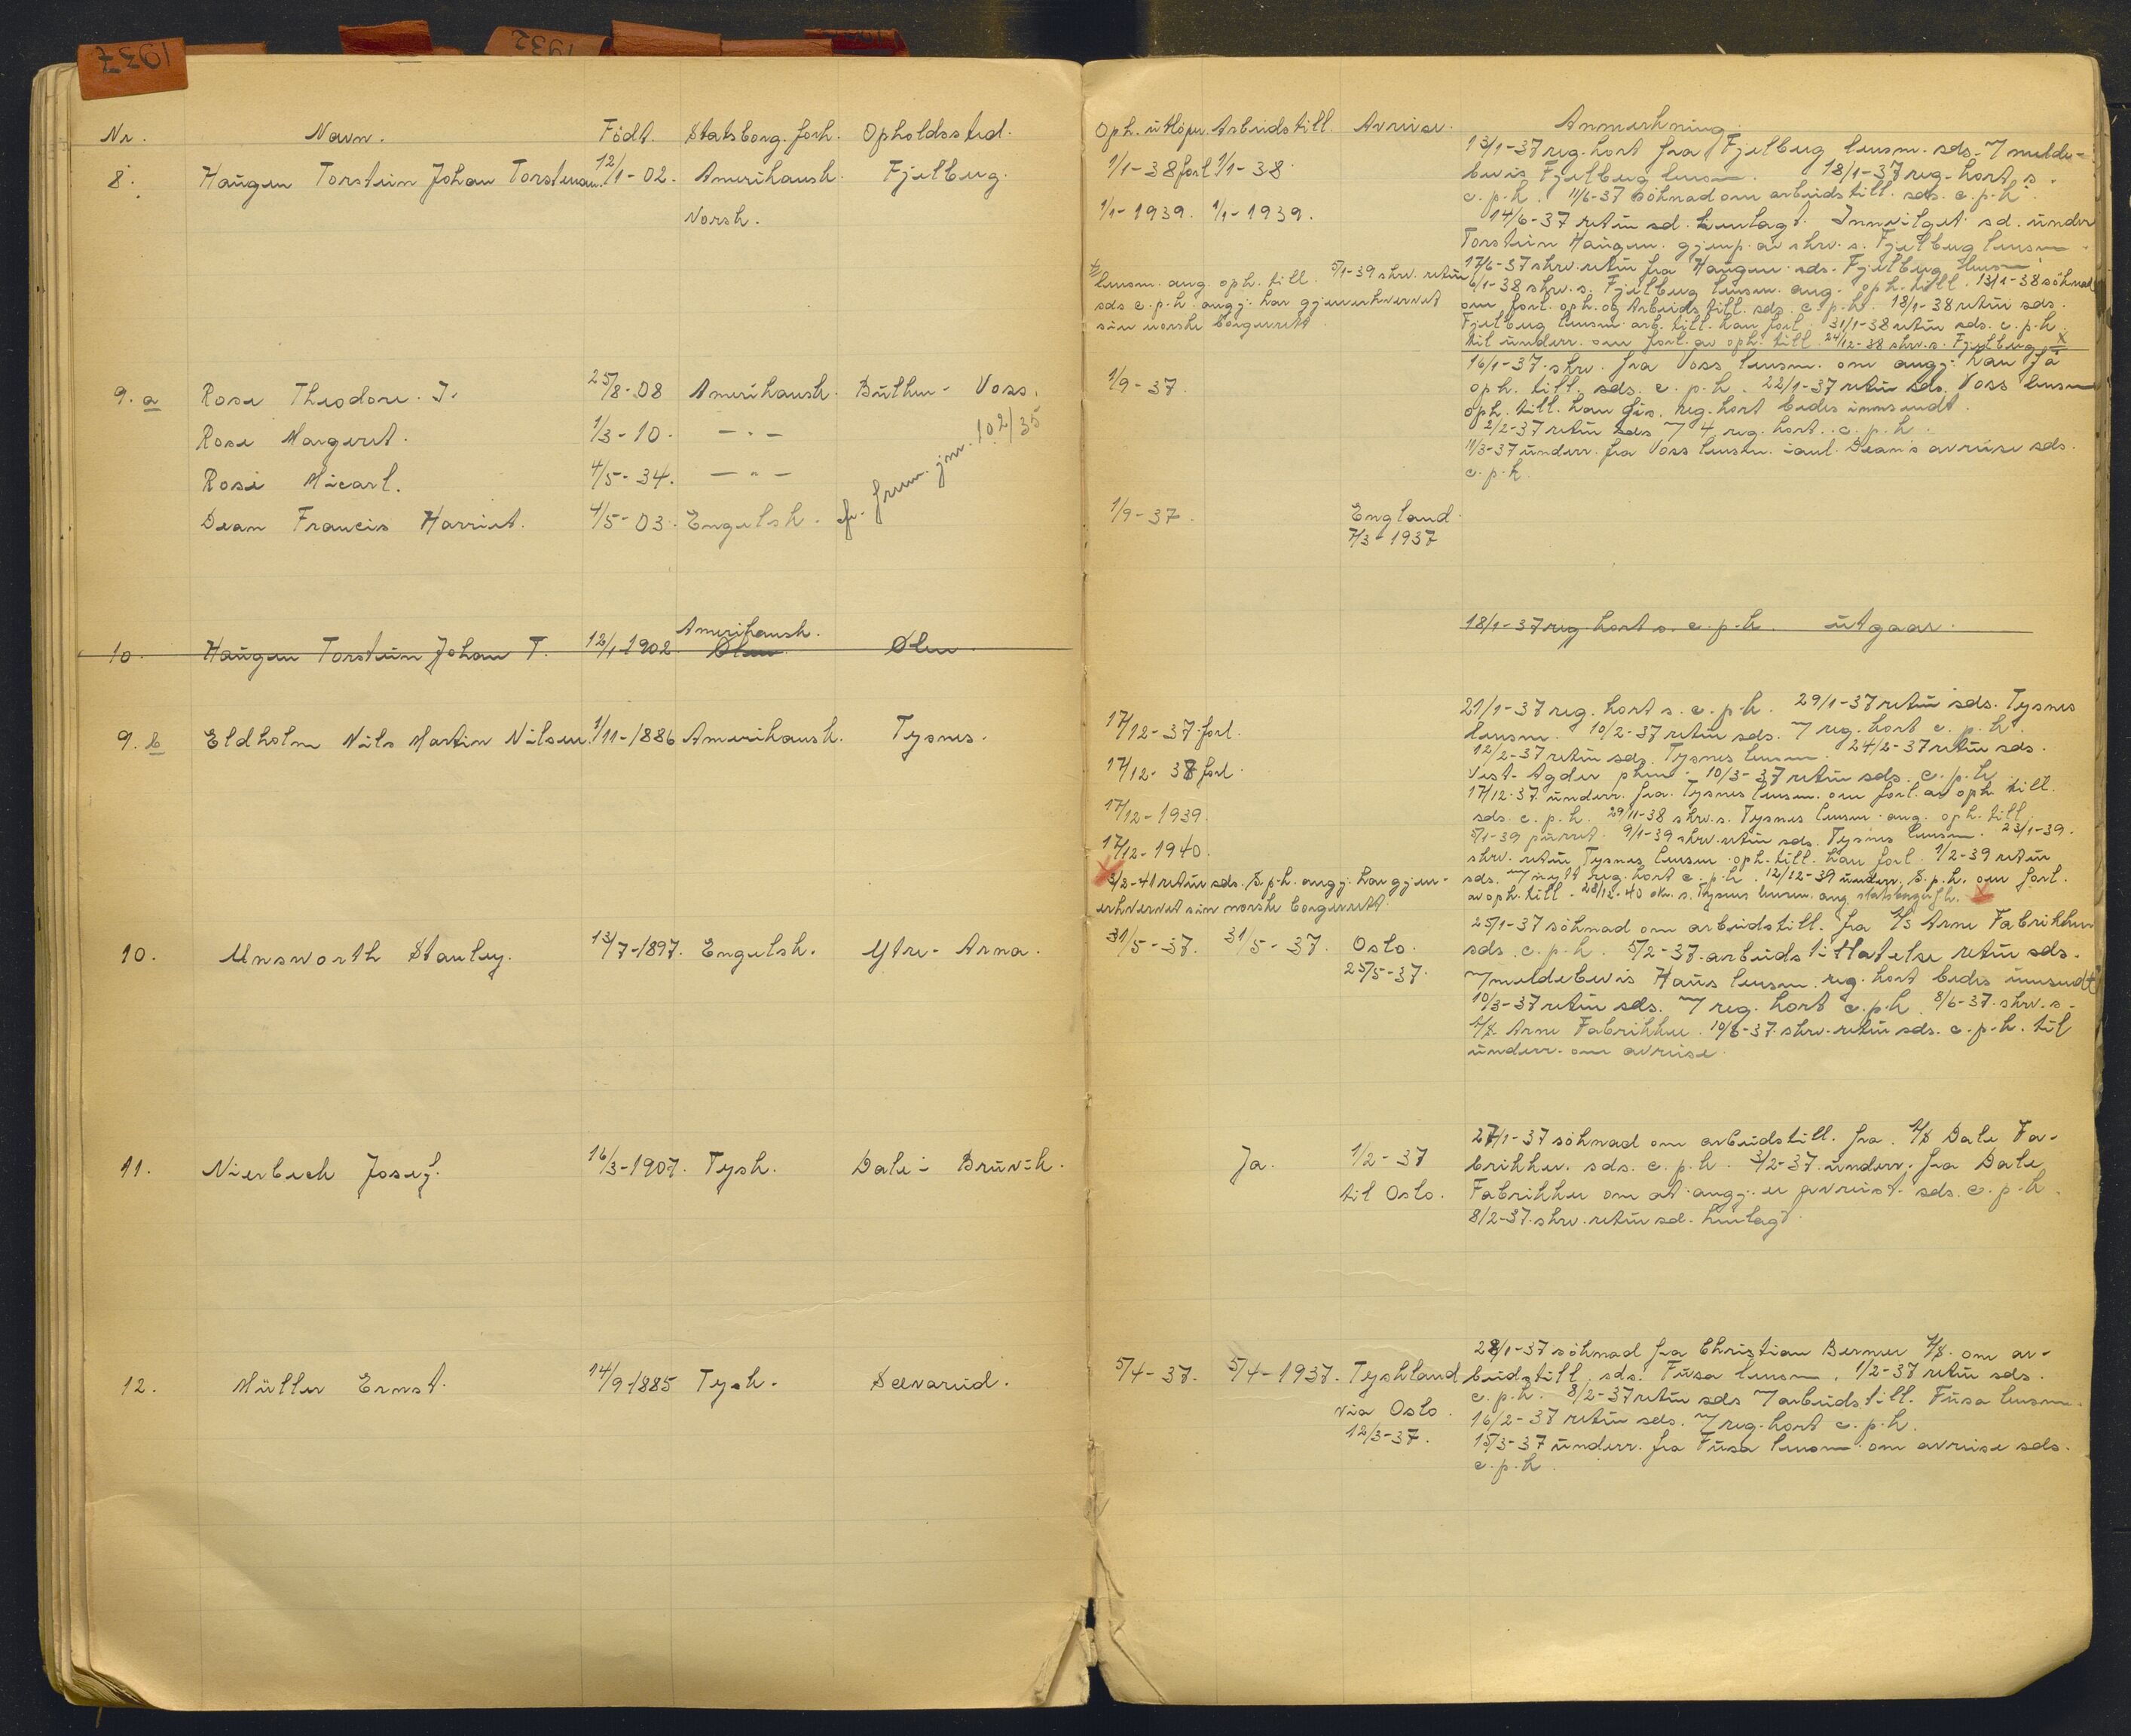 1937
1932
Nr. Navn. Födt. Statsborg. forh. Opholdssted.
8. Haugen Torstein Johan Torsteinsen. 12/1-02. Amerikansk. Fjelberg.
Norsk.
9. a Rose Theodore. J. 25/8-08 Amerikansk. Büthun - Voss.
Rose Margeret. 1/3-10. — " —
Rose Micael. 4/5-34. — " —
Dean Francis Harriet. 4/5-03. Engelsk.
cfr. frem. jnr. 102/35
10. Haugen Torstein Johan T. 12/1-1902. Amerikansk. Ølen Ølen.
9. b Eldholm Nils Martin Nilsen. 1/11-1886 Amerikansk. Tysnes.
10. Unsworth Stanley. 13/7-1897. Engelsk. Ytre-Arna.
11. Nierbech Josef. 16/3-1907. Tysk. Dale i Bruvik.
12. Müller Ernst. 14/9-1885 Tysk. Sævareid.
Oph. utlöper. Arbeidstill. Avreise. Anmerkning.
1/1-38 forl 1/1-38.
1/1-1939. 1/1-1939.
13/1-37 reg. kort fra Fjelberg lensm. sds. 7 melde-
bevis Fjelberg lensm. 18/1-37 reg. kort s.
c.p.k. 11/6-37 söknad om arbeidstill. sds. c.p.k.
14/6-37 retur sd. henlagt. Innvilget sd. under
Torstein Haugen. gjenp. av skrv. s. Fjelberg lensm.
17/6-37 skrv. retur fra Haugen sds. Fjelberg lensm.
6/1-38 skrv. s. Fjelberg lensm. ang. oph. till. 13/1-38 söknad
om forl. oph. og Arbeids till. sds. c.p.k. 18/1-38 retur sds.
Fjelberg lensm. arb. till. kan forl. 31/1-38 retur sds. c.p.k.
til underr. om forl. av oph. till. 24/12-38 skrv. s. Fjelberg x
lensm. ang. oph. till. 5/1-39 skrv. retur
sds c.p.k. angj. har gjenerhvervet
sin norske borgerrett.
1/9-37.
16/1-37. skrv. fra Voss lensm. om angj. kan få
oph. till. sds. c.p.k. 22/1-37 retur sds. Voss lensm
oph. till. kan gis. reg. kort bedes innsendt.
2/2-37 retur sds 7 4 reg. kort. c.p.k.
11/3-37 underr. fra Voss lensm. i anl. Dean's avreise sds.
c.p.k.
1/9-37. England.
7/3-1937
18/1-37 reg kort s. c.p.k. utgaar.
17/12-37 forl.
17/12-38 forl.
17/12-1939.
17/12-1940.
21/1-37 reg. kort s. c.p.k. 29/1-37 retur sds. Tysnes
lensm. 10/2-37 retur sds. 7 reg. kort c.p.k.
12/2-37 retur sds. Tysnes lensm. 24/2-37 retur sds.
Vest-Agder 10/3-37 retur sds. c.p.k.
17/12-37 underr. fra Tysnes lensm. om forl. av oph. till.
sds. c.p.k. 29/11-38 skrv. s. Tysnes lensm. ang. oph. till.
5/1-39 purret. 9/1-39 skrv. retur sds. Tysnes lensm. 23/1-39.
skrv. retur Tysnes lensm. oph. till. kan forl. 1/2-39 retur
sds. 7 nytt reg. kort c.p.k. 12/12-39 underr. S.p.k. om forl.
av oph. till. 28/12-40 skr. s. Tysnes lensm. ang. statsborgerfh. x
x 3/2-41 retur sds. S.p.k. angj. har gjen-
erhvervet sin norske borgerrett.
31/5-37. 31/5-37. Oslo.
25/5-37.
25/1-37 söknad om arbeidstill. fra A/S Arne Fabrikker
sds. c.p.k. 5/2-37. arbeidstillatelse retur sds.
7 meldebevis Haus lensm. reg. kort bedes innsendt
10/3-37 retur sds. 7 reg. kort c.p.k. 8/6-37. skrv. s.
A/S. Arne Fabrikker. 10/6-37. skrv. retur sds. c.p.k. til
underr. om avreise.
Ja. 1/2-37
til Oslo.
27/1-37 söknad om arbeidstill. fra. A/S Dale Fa-
brikker. sds. c.p.k. 3/2-37. underr. fra Dale
Fabrikker om at angj. er avreist. sds. c.p.k.
8/2-37. skrv. retur sd. henlagt.
5/4-37. 5/4-1937. Tyskland
via Oslo.
12/3-37.
28/1-37 söknad fra Christian Berner A/S. om ar-
beidstill. sds. Fusa lensm. 1/2-37 retur sds.
c.p.k. 8/2-37 retur sds 7 arbeidstill. Fusa lensm.
16/2-37 retur sds. 7 reg. kort c.p.k.
15/3-37 underr. fra Fusa lensm. om avreise sds.
c.p.k.